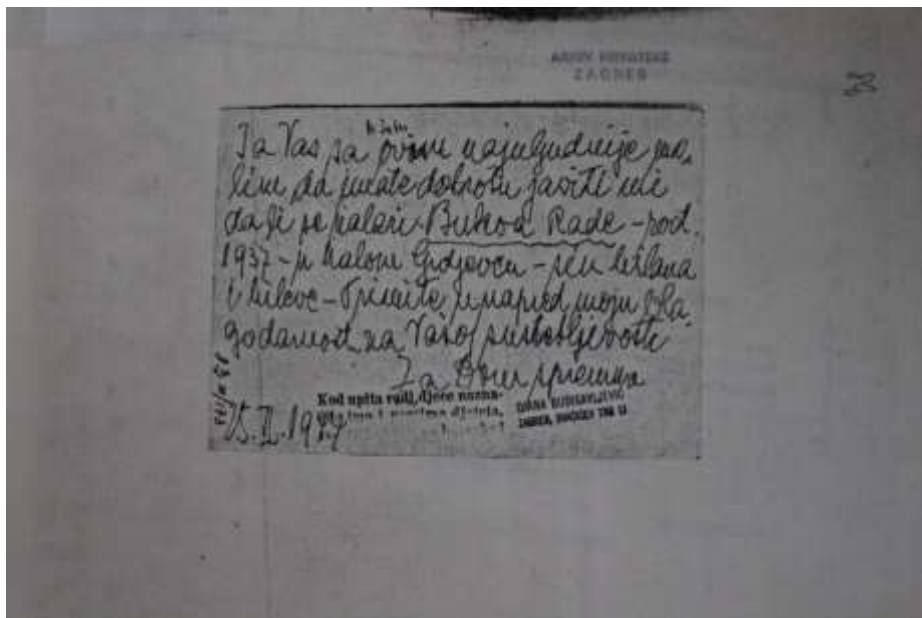 ARHIV HRVATSKE
ZAGREB
Ja Vas sa ovim najuljudnije mo-
lim da imate dobrotu javiti mi
da li se nalazi Bukva Rade - rod.
1937 - u Malom Grdjevcu - sin Milana
i Mileve - Primite unapred moju bla
godarnost na Vašoj susretljivosti
Za Dom spremna
Kod upita radi djece nazna-
DIANA BUDISAVLJEVIĆ
ZAGREB,
15. II. 1944